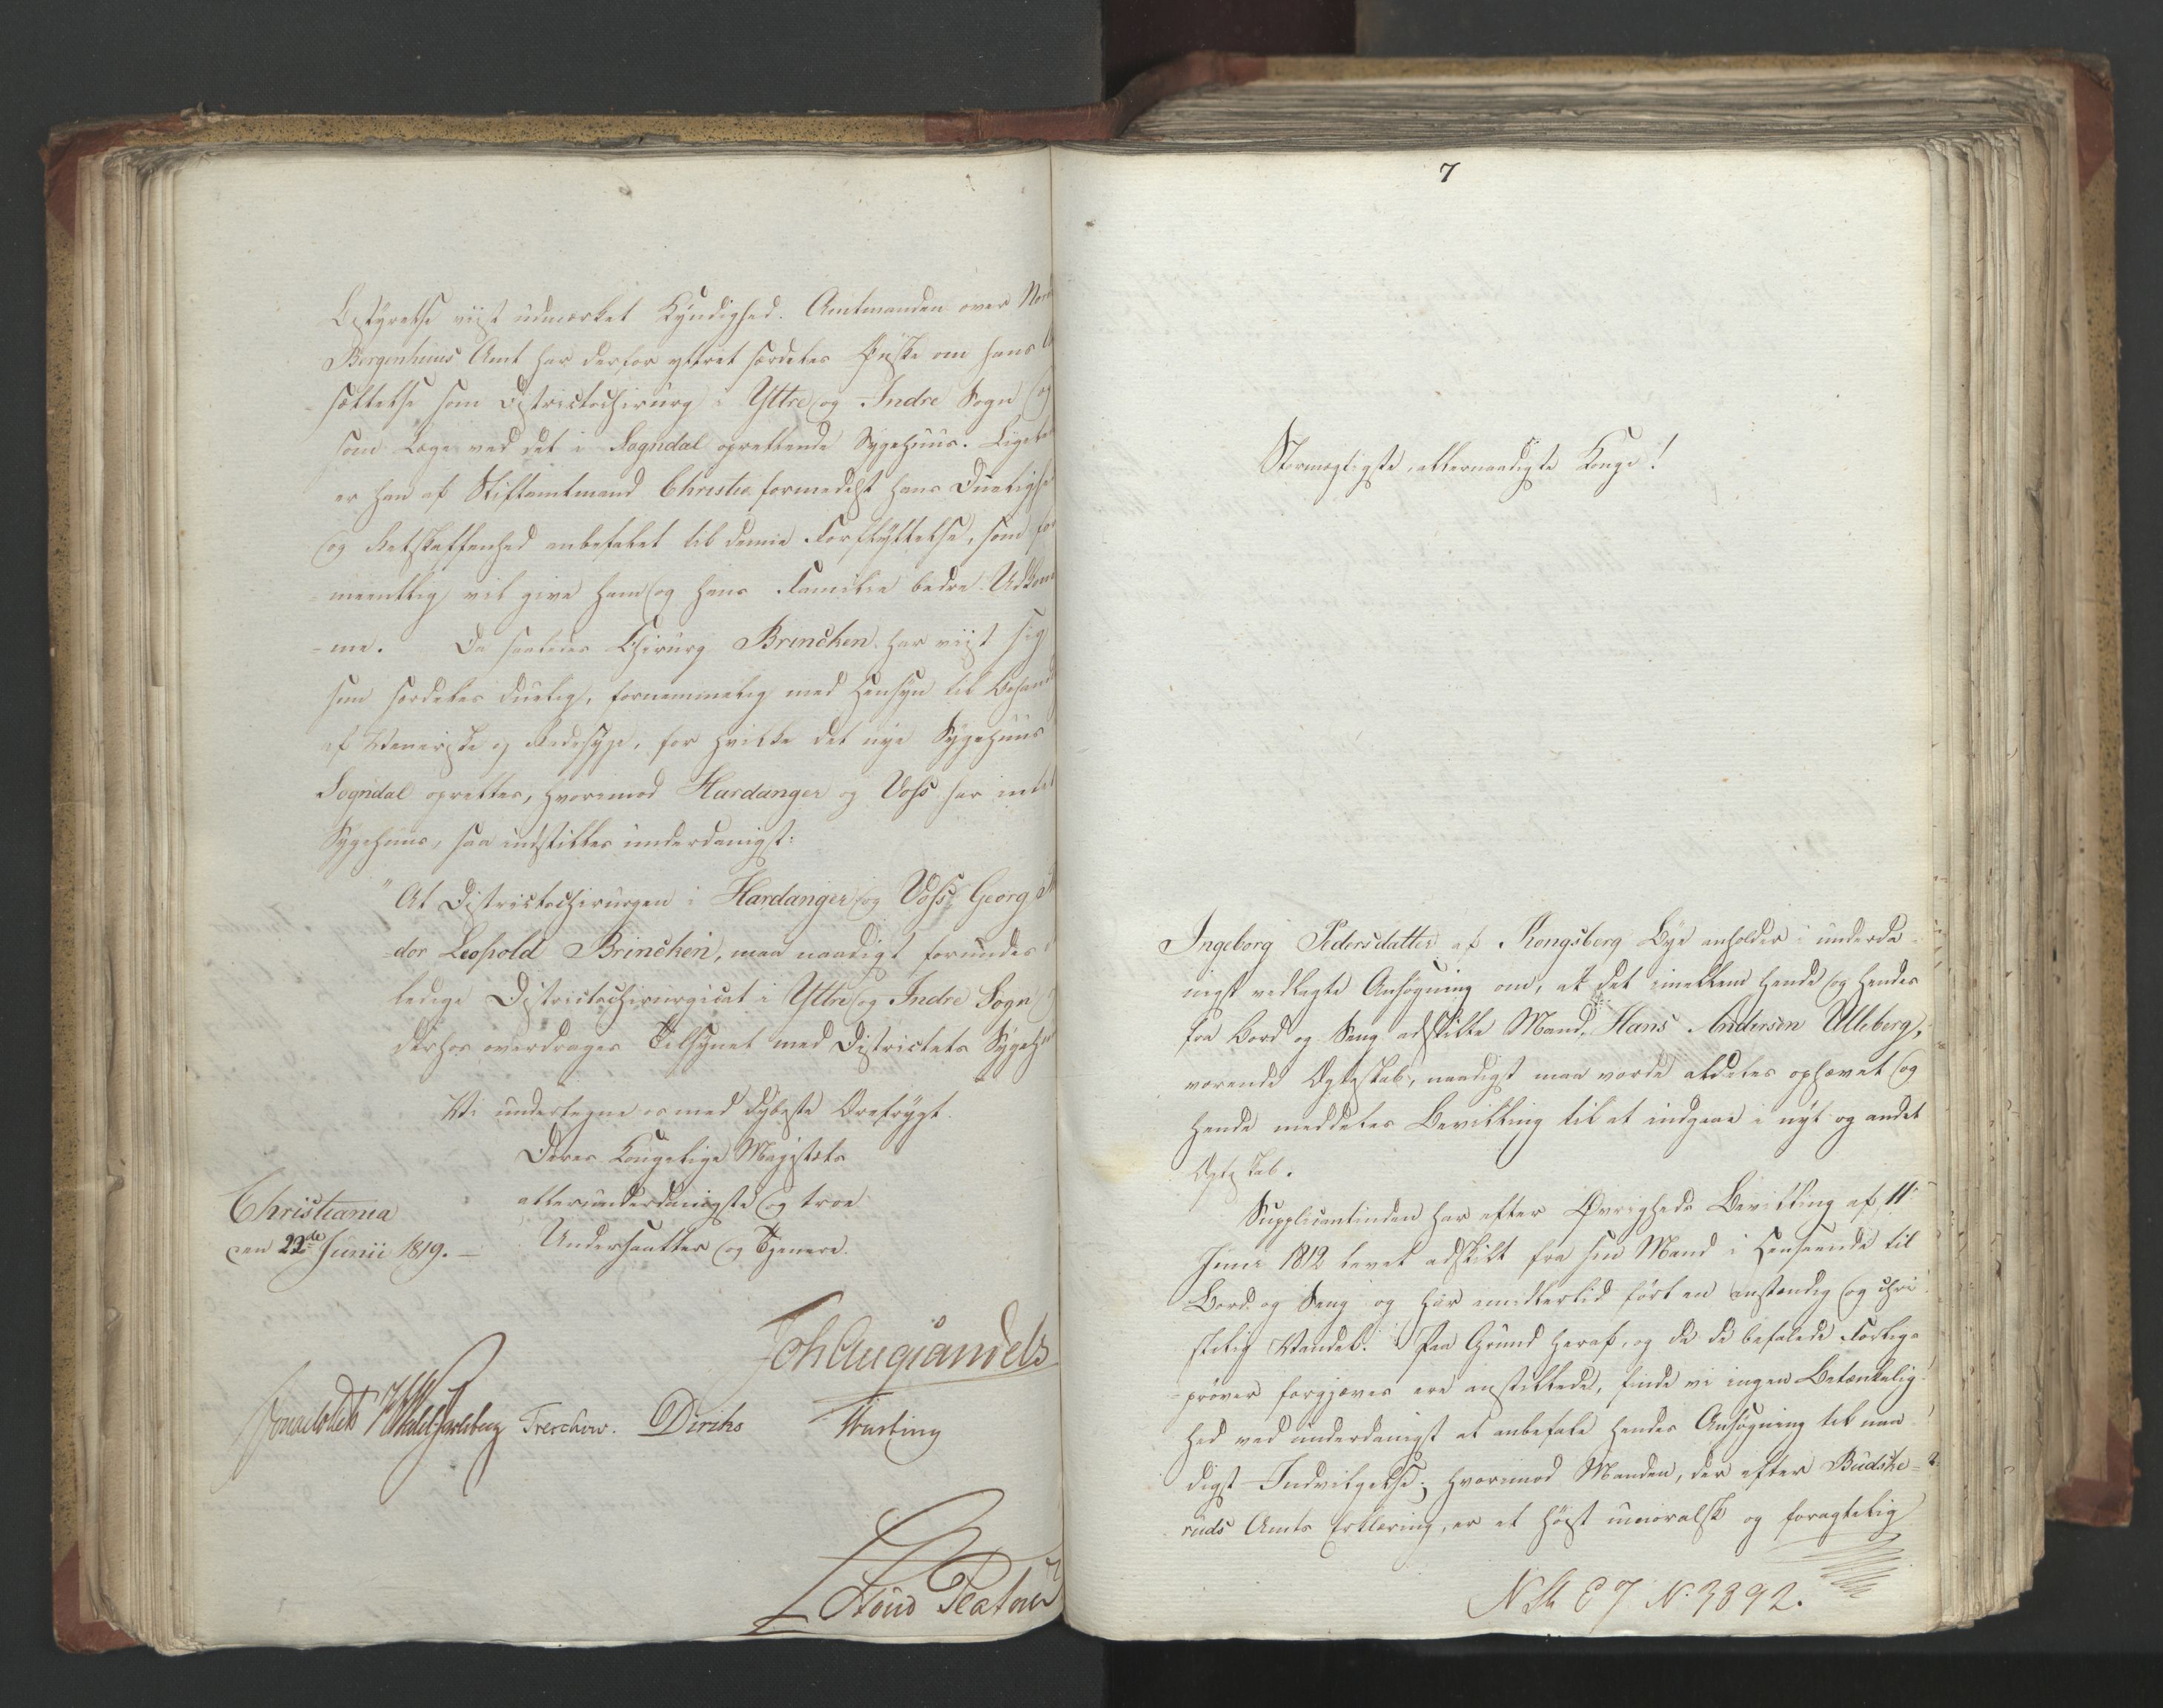 Bestyrelse viist udmærket Kyndighed. Amtmanden over Nord
Bergenhuus Amt har derfor yttret særdeles Ønske om hans
-sættelse som Districtschirurg i Yttre og Indre Sogn og
som Læge ved det i Sogndal oprettende Sygehuus. Ligeled
er han af Stiftamtmand Christie formedelst hans Duelighed
og Retskaffenhed anbefalet til denne Forflyttelse, som for
-meentlig vil give ham og hans Familie bedre Udkom
-me. Da saaledes Chirurg Brincken har viist sig
som særdeles duelig, fornemmelig med Hensyn til Behand
af Veneriske og Radesyge, for hvilke det nye Sygehuus
Sogndal oprettes, hvorimod Hardanger og Voss har intet
Sygehuus, saa indstilles underdanigst:
"At Districtschirurgen i Hardanger og Voss Georg
-dor Leopold Brincken, maa naadigst forundes
ledige Districtschirurgicat i Yttre og Indre Sogn
derhos overdrages Tilsynet med Districtets Sygehu
Vi undertegne os med dybeste Ærefrygt.
Deres Kongelige Majestæts
allerunderdanigste og troe
Undersaatter og Tjenere.
Christiania
den 22de Junii 1819. —
Joh Aug Sandels
Treschow. Diriks
7
Stormægtigste, allernaadigste Konge!
Ingeborg Pedersdatter af Kongsberg Bye anholder i underda-
nigst vedlagte Ansøgning om, at det imellem hende og hendes
fra Bord og Seng adskilte Mand, Hans Andersen Ulleberg,
værende Ægteskab, naadigst maa vorde aldeles ophævet og
hende meddeles Bevilling til at indgaae i nyt og andet
Ægteskab.
Supplicantinden har efter Øvrigheds Bevilling af 11
Junii 1812 levet adskilt fra sin Mand i Henseende til
Bord og Seng og har imidlertid ført en anstændig og chri
stelig Vandel. Paa Grund heraf, og da de befalede Forligs
-prøver forgjæves ere anstillede, finde vi ingen Betænkelig-
hed ved underdanigst at anbefale hendes Ansøgning til naa
digst Indvilgelse; hvorimod Manden, der efter Budske-
ruds Amts Erklæring, er et høist umoralsk og foragtelig
N. 3892.